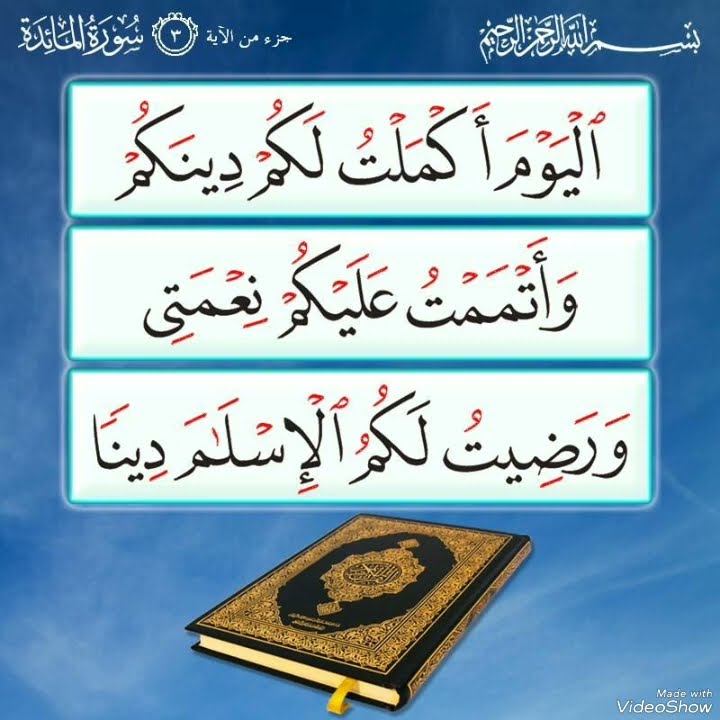 بسم الله الرحمن الرحيم
جزء من الآية ٣ سُورَةُ المَائِدَة
ٱلۡيَوۡمَ أَكۡمَلۡتُ لَكُمۡ دِينَكُمۡ
وَأَتۡمَمۡتُ عَلَيۡكُمۡ نِعۡمَتِي
وَرَضِيتُ لَكُمُ ٱلۡإِسۡلَٰمَ دِينٗا
Made with
VideoShow